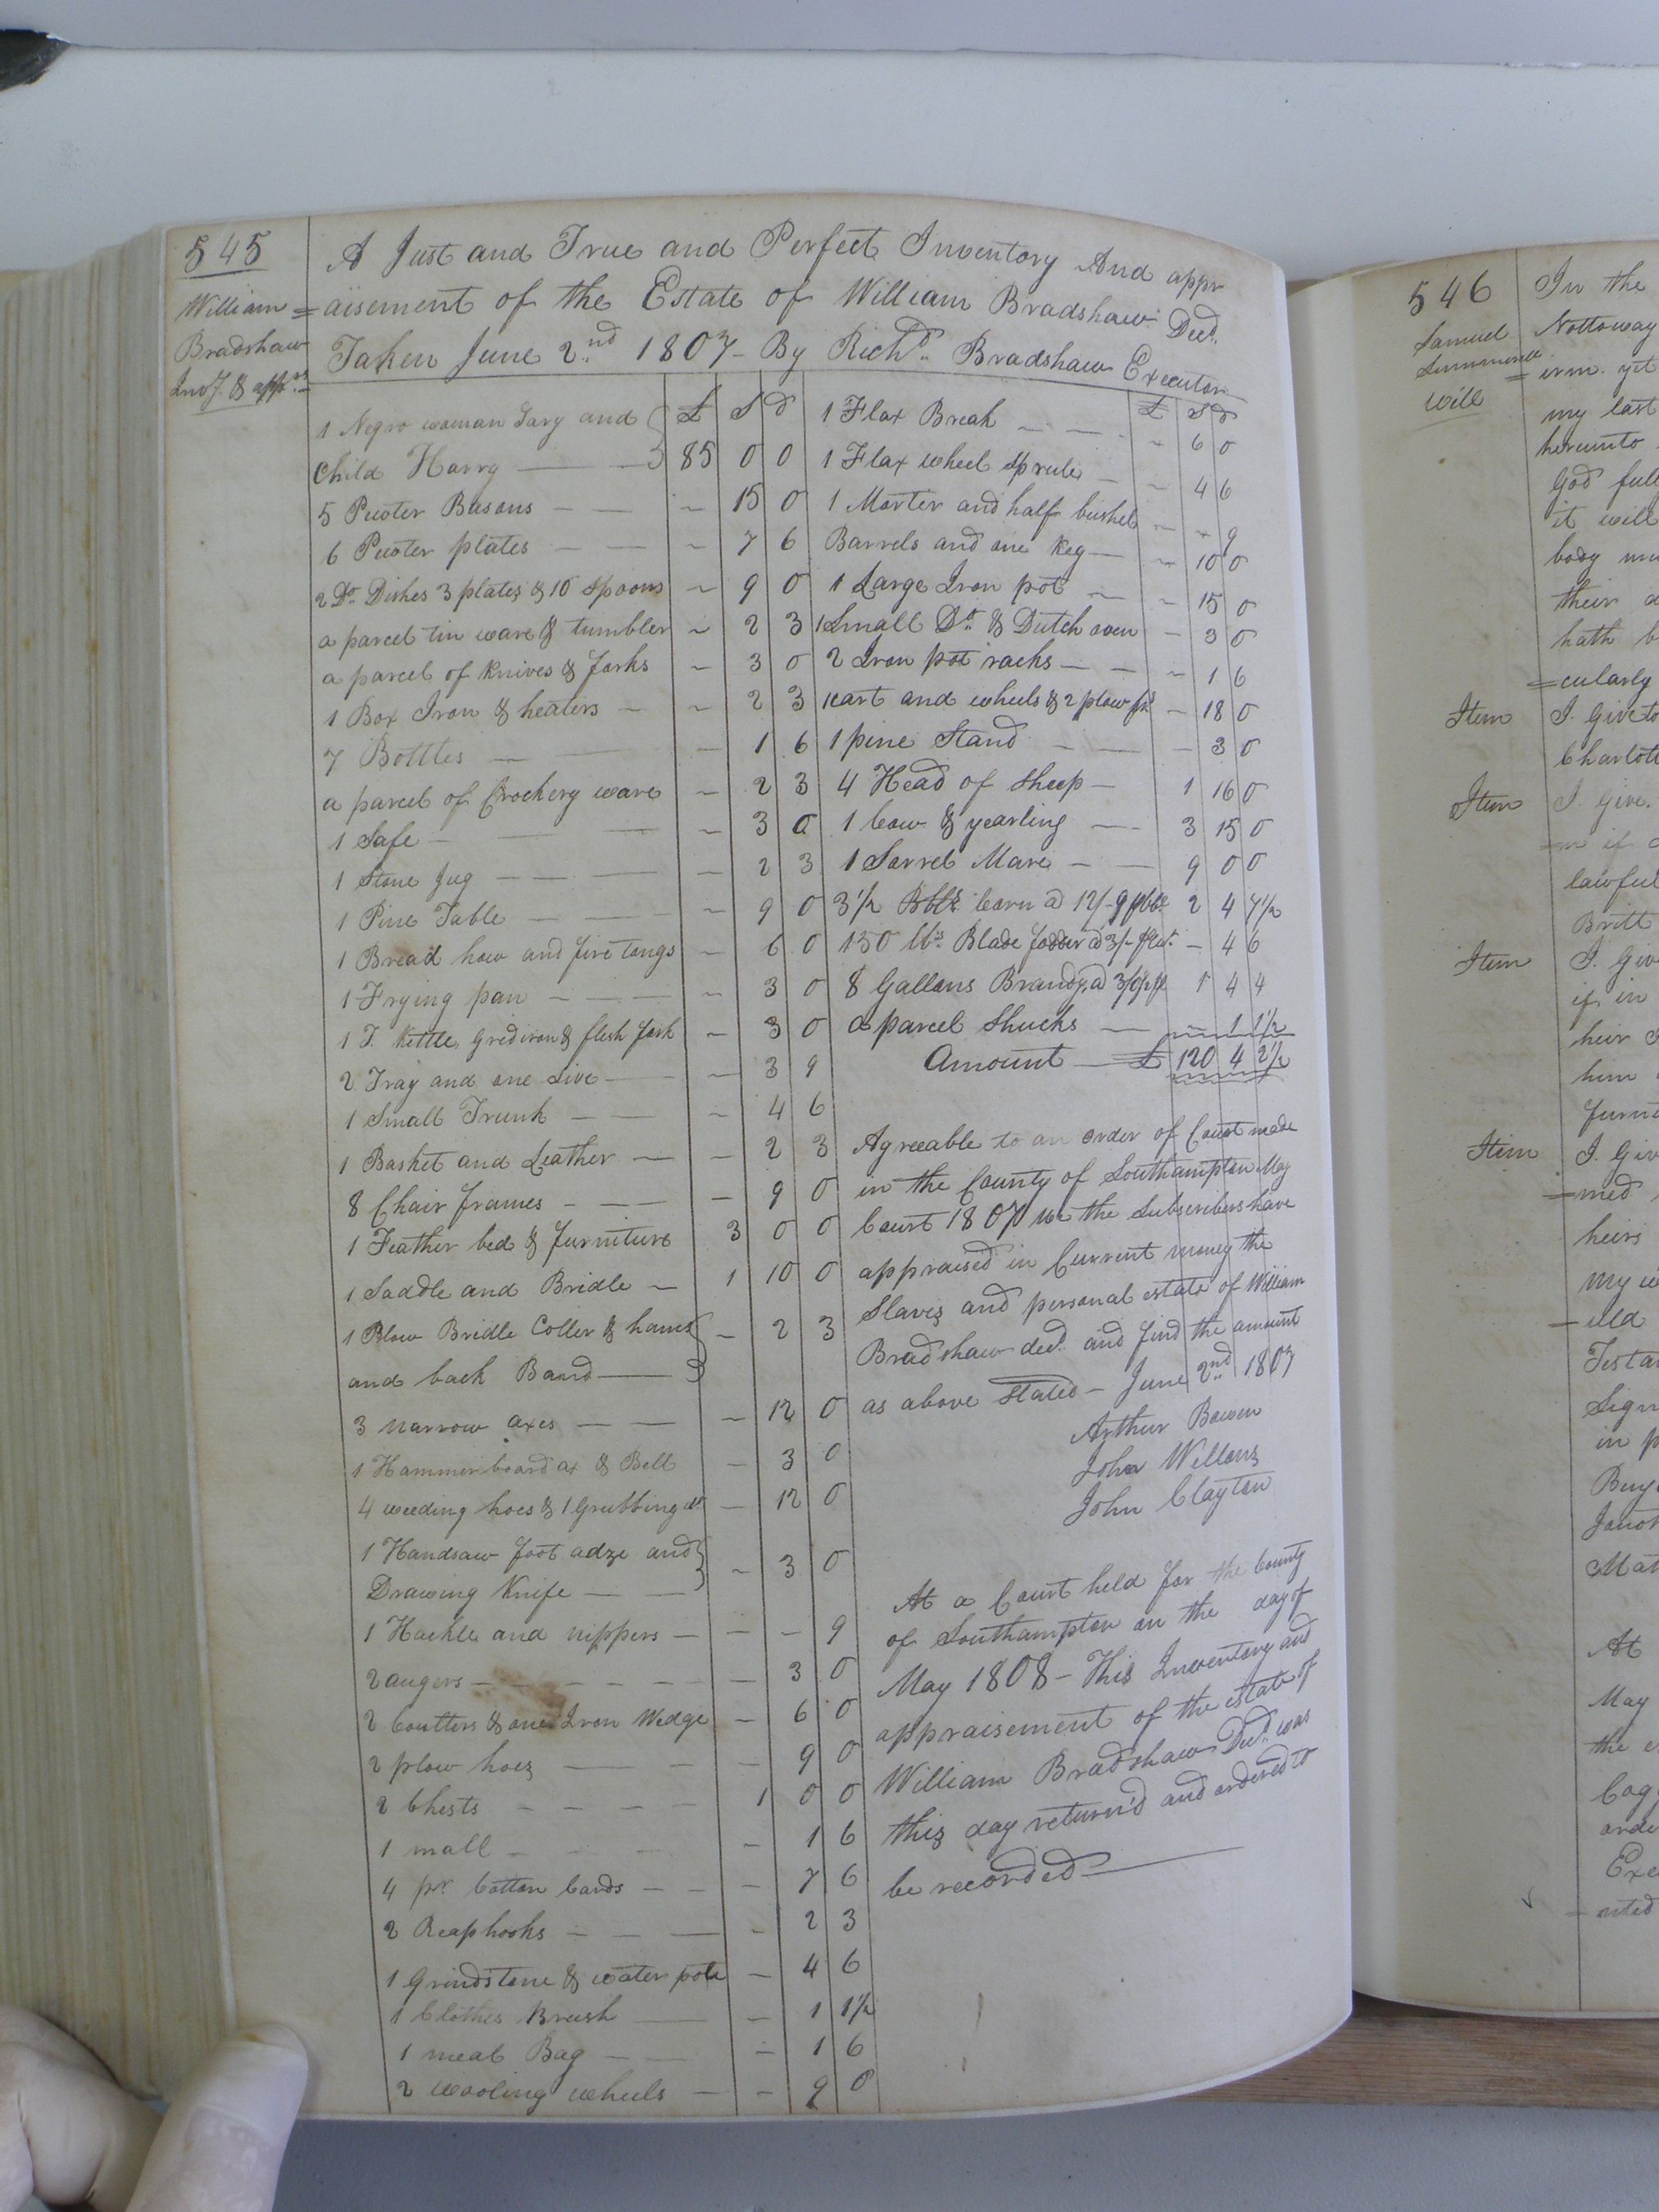 545
William
Bradshaw
Invy. & apprs
A Just and True and Perfect Inventory And appr
=aisement of the Estate of William Bradshaw Decd.
Taken June 2nd 1807 - By Richd. Bradshaw Executor
£ S d
1 Negro woman Sary and
Child Harry 85 0 0
5 Pewter Basons 15 0
6 Pewter plates 7 6
2 Do. Dishes 3 plates & 10 Spoons 9 0
a parcel tin ware & tumbler 2 3
a parcel of Knives & forks 3 0
1 Box Iron & heaters 2 3
7 Bottles 1 6
a parcel of Crockery ware 2 3
1 Safe 3 0
1 Stone Jug 2 3
1 Pine Table 9 0
1 Bread how and fire tongs 6 0
1 Frying pan 3 0
1 T. Kettle, Gridiron & flesh fork 3 0
2 Tray and one Sive 3 9
1 Small Trunk 4 6
1 Basket and Leather 2 3
8 Chair frames 9 0
1 Feather bed & furniture 3 0 0
1 Saddle and Bridle 1 10 0
1 Blow Bridle Coller & hames
and back Band 2 3
3 narrow axes 12 0
1 Hammer board ax & Bell 3 0
4 weeding hoes & 1 Grubbing do 12 0
1 Handsaw foot adze and
Drawing Knife 3 0
1 Hackle and nippers 9
2 augers 3 0
2 Coulters & one Iron Wedge 6 0
2 plow hoes 9 0
2 Chests 1 0 0
1 mall 1 6
4 pr. Cotton Cards 7 6
2 Reaphooks 2 3
1 Grindstone & water pole 4 6
1 Clothes Brush 1 1½
1 meal Bag 1 6
2 wooling wheels 9 0
£ S d
1 Flax Break 6 0
1 Flax wheel 4 6
1 Morter and half bushel 9
Barrels and one Keg 10 0
1 Large Iron pot 15 0
1 Small Do. & Dutch oven 3 0
2 Iron pot racks 1 6
1 cart and wheels & 2 plow 18 0
1 pine Stand 3 0
4 Head of Sheep 1 16 0
1 Cow & yearling 3 15 0
1 Sorrel Mare 9 0 0
3½ Bbls. Corn a 12/9 2 4 7½
150 lbs. Blade fodder a 3/- 4 6
8 Gallons Brandy a 1 4 4
a parcel Shucks 1 1½
Amount £ 120 4 2½
Agreeable to an order of Court made
in the County of Southampton May
Court 1807 we the Subscribers have
appraised in Current money the
Slaves and personal estate of William
Bradshaw decd. and find the amount
as above Stated - June 2nd 1807
Arthur Bowen
John Wellons
John Clayton
At a Court held for the County
of Southampton on the day of
May 1808 - This Inventory and
appraisement of the estate of
William Bradshaw Decd. was
this day return'd and ordered to
be recorded
546
Samuel
will
In the
Nottoway
=irm. yet
my last
hereunto
God full
it will
body
their
hath b
=cularly
Item I. Give to
Charlott
Item I. Give.
lawful
Britt
Item I. Giv
if in
heir
him
furni
Item I. Giv
=med
heirs
my
Testa
Sign
in p
At
May
the